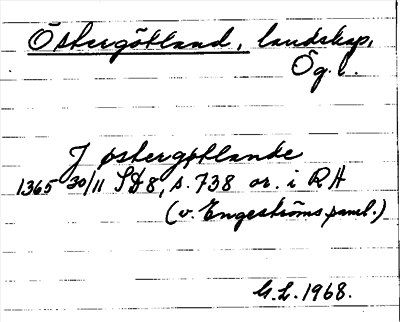 Östergötland, landskap,
Ög. l.
J østergøtlande
1365 30/11 SD8, s. 738 or. i RA
(v. Engeströms saml.)
G.L. 1968.